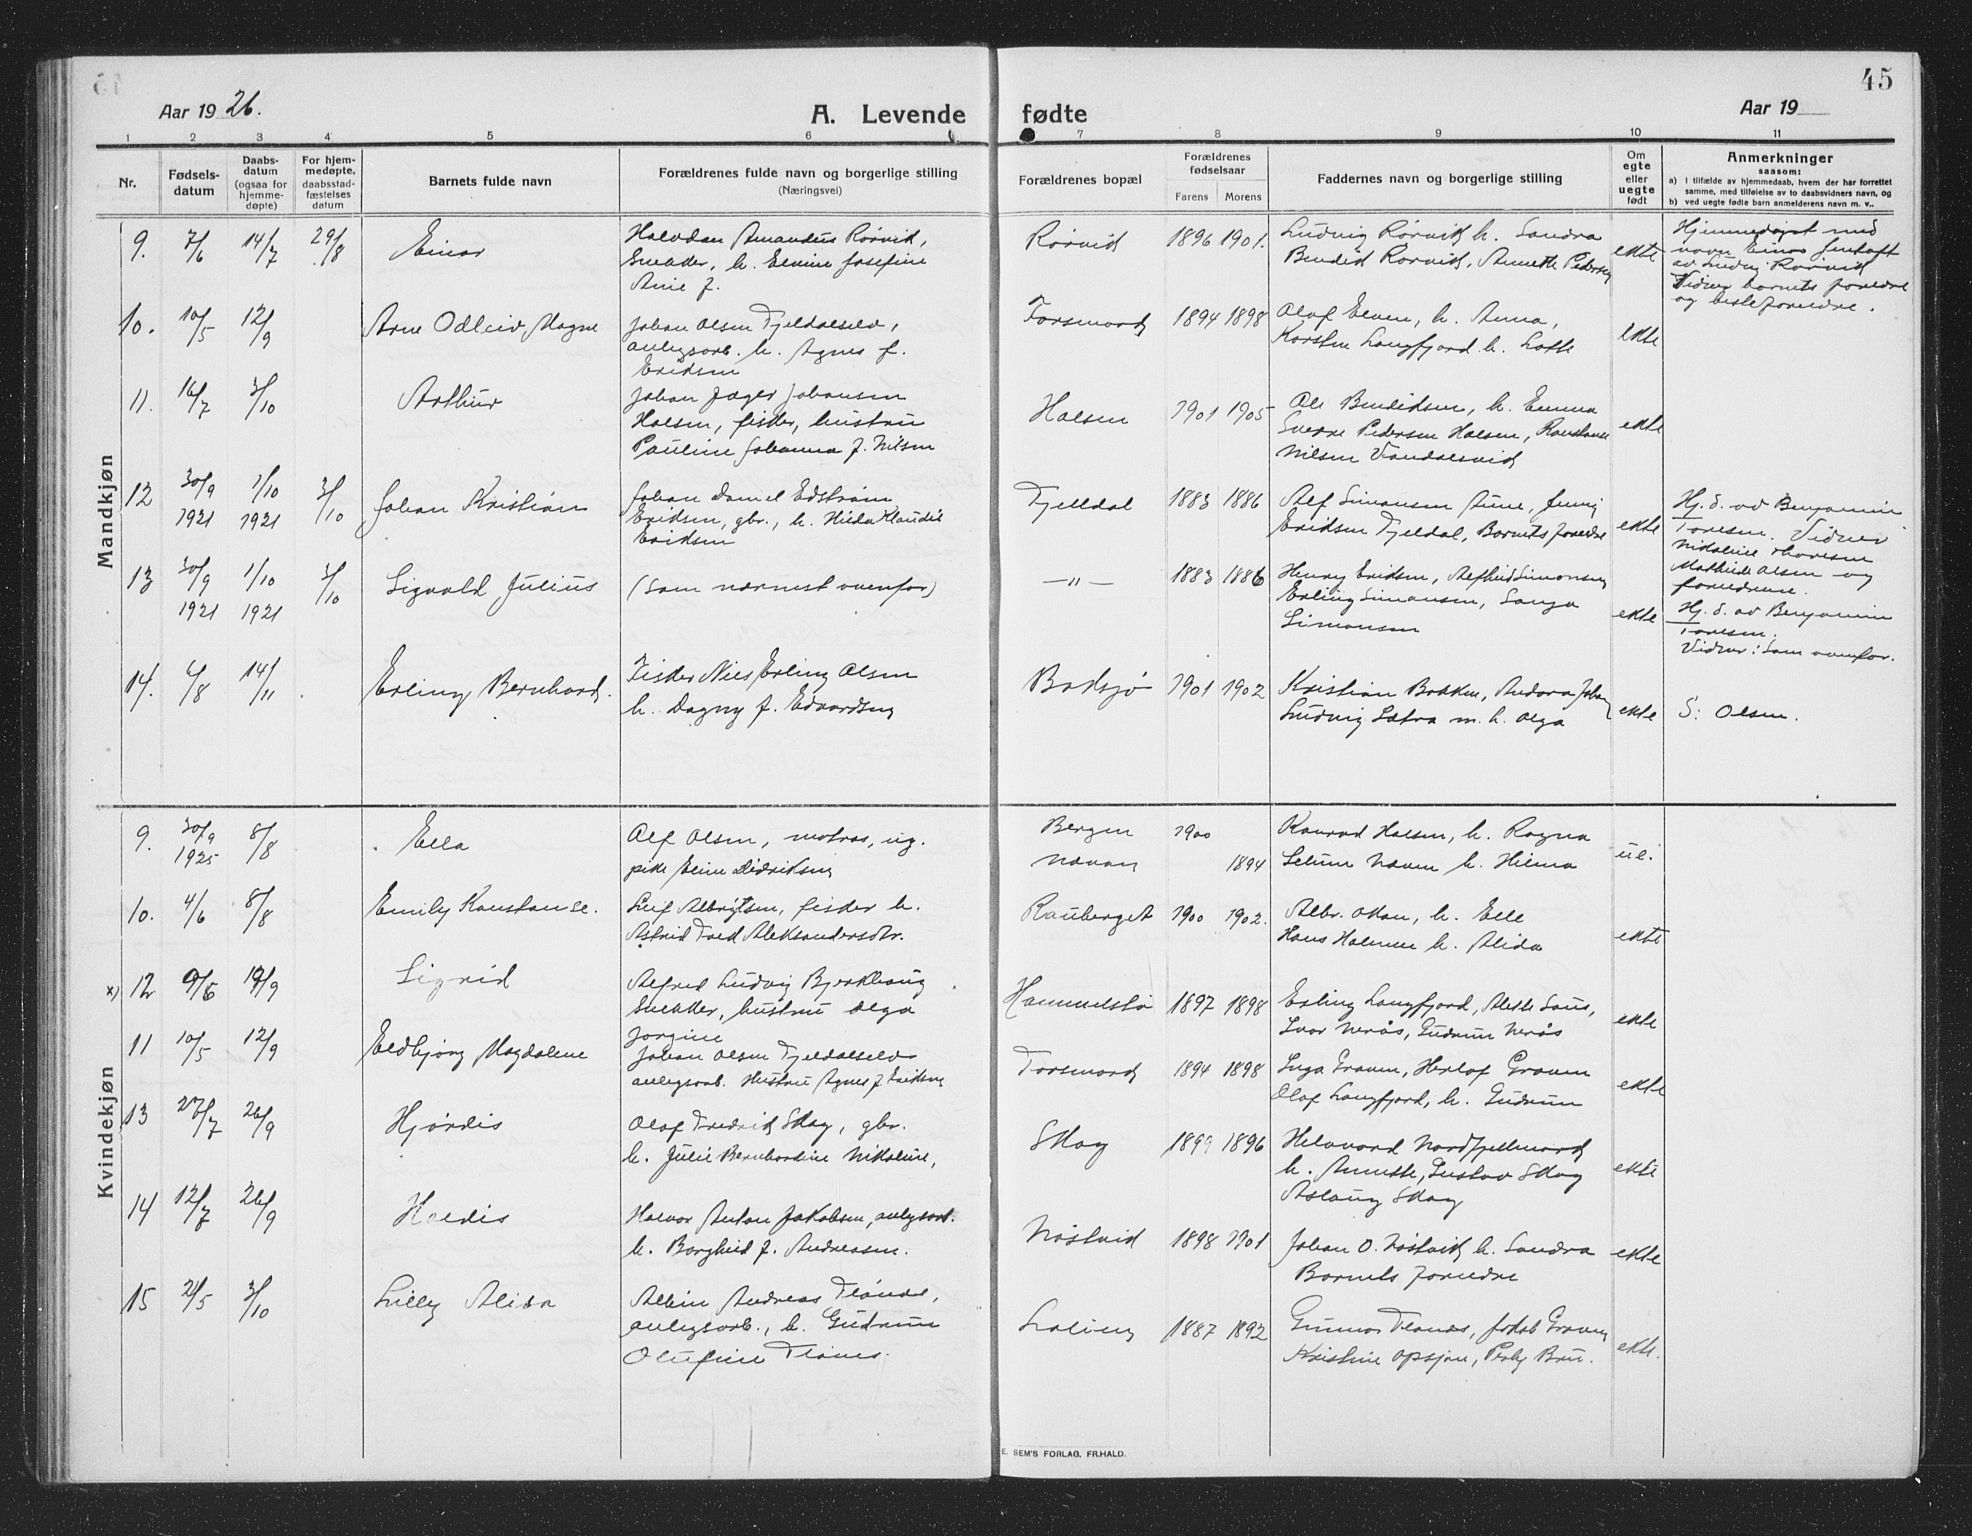 45
Aar 1926.
A. Levende fødte
Aar 19
1 2 3 4 5 6 7 8 9 10 11
Nr.
Fødselsdatum
Daabsdatum (ogsaa for hjemmedøpte)
For hjemmedøpte, daabsstadfæstelses datum
Barnets fulde navn
Forældrenes fulde navn og borgerlige stilling
(Næringsvei)
Forældrenes bopæl
Forældrenes fødselsaar
Farens Morens
Faddernes navn og borgerlige stilling
Om egte eller uegte født
Anmerkninger
saasom:
a) i tilfælde av hjemmedaab, hvem der har forrettet
samme, med tilføielse av to daabsvidners navn, og
b) ved uegte fødte barn anmelderens navn m. v..
Mandkjøn
9. 7/6 14/7 29/8 Einar
Halvdan Amandus Rørvik,
h. Elvine Josefine
Rørvik 1896 1901.
Ludvig Rørvik h. Sandra
Bendik Rørvik, Annette Pedersen
ekte
Hjemmedøpt med
navn Einar
av Ludvig Rørvik
Vidner barnets foreldre
og besteforeldre.
10. 10/5 12/9 Arne Odleiv Magne
Johan Olsen Fjeldalselv,
anlegsarb. h. Agnes f.
Eriksen
Forsmark 1894 1898
Olaf Elven, h. Anna,
Karsten Langfjord h. Lotte
ekte
11. 16/7 3/10 Arthur
Johan Jæger Johansen
Halsen, fisker, hustru
Pauline Johanna f. Nilsen
Halsen 1901 1905
Ole Bendiksen, h. Emma
Sverre Pedersen Halsen, Konstanse
Nilsen
ekte
12 30/9 1921 1/10 1921 3/10 Johan Kristian
Johan Daniel Edstrøm
Eriksen, gbr., h. Hilda Klaudie
Eriksen
Fjelldal 1883 1886
Alf Simonsen Aune, Jenny
Eriksen Fjelldal, Barnets foreldre
ekte
Hj. d. av Benjamin
Toresen. Vidner
Nikoline Thoresen
Mathilde Olsen og
foreldrene.
13 30/9 1921 1/10 1921 3/10 Sigvald Julius
(Som nærmest ovenfor)
—"— 1883 1886
Henry Eriksen, Alfhild Simonsen
Erling Simonsen, Sanga
Simonsen
ekte
Hj. d. av Benjamin
Toresen.
Vidner: Som ovenfor.
14. 6/8 14/11 Erling Bernhard.
Fisker Nils Erling Olsen
h. Dagny f. Edvardsen
1901 1902
Kristian Bakken, Andora
Ludvig Sætra m. h. Olga
ekte
S: Olsen.
Kvindekjøn
9. 30/9 1925 8/8 Ella
Alf Olsen, matros, ug.
pike Eline Didriksen
Bergen 1900
Nævan 1894
Konrad Halsen, h. Ragna
h. Hilma
10. 4/6 8/8 Emily Konstanse.
Leif Albrigtsen, fisker h.
Astrid Aleksandersdtr.
Rauberget 1900 1902.
h. Elle
Hans h. Alida
ekte
x) 12 9/6 19/9 Sigrid
Alfred Ludvig Bjerkhaug
hustru Olga
Jorgine
1897 1898
Erling Langfjord,
Ivar Nerås, Gudrun Nerås
ekte
11 10/5 12/9 Eldbjørg Magdalene
Johan Olsen Fjeldalselv
anlegsarb. Hustru Agnes f. Eriksen
Forsmark 1894 1898
Inga Graven, Herlof Graven
Olaf Langfjord, h. Gudrun
ekte
13 27/7 26/9 Hjørdis
Olaf Fredrik Skog, gbr.
h. Julie Bernhardine Nikoline,
Skog 1899 1896
Halvard Nordfjellmark
h. Annette, Gustav Skog
Aslaug Skog
ekte
14 12/7 26/9 Haldis
Halvor Anton Jakobsen, anlegsarb.
h. Borghild f. Andreasen.
Nøstvik 1898 1901
Johan O. Nøstvik h. Sandra
Barnets foreldre
ekte
15 21/5 3/10 Lilly Alida
Albin Andreas
anlegsarb., h. Gudrun
Olufine
1887 1892
Gunnar
Kristine
ekte.
E. SEM'S FORLAG, FR.HALD.